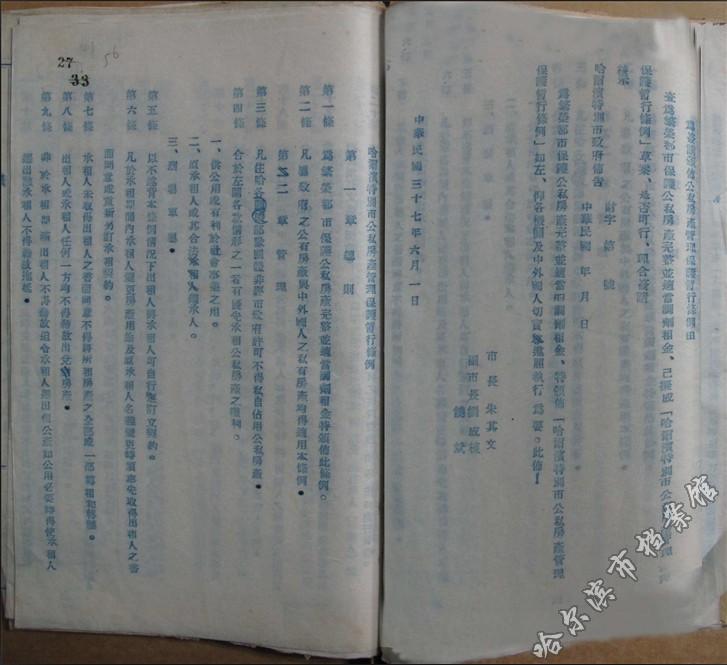 為簽請頒佈公私房產管理保護暫行條例由
查為繁榮都市保護公私房產完整並適當調劑租金、已擬成「哈爾濱特別市公私房產管理
保護暫行條例」草案、是否可行、理合簽請
核示
中華民國 年 月 日
財字 第 號
哈爾濱特別市政府佈告
為繁榮都市保護公私房產完整並適當調劑租金、特頒佈「哈爾濱特別市公私房產管理
保護暫行條例」如左、仰各機關及中外國人切實遵照執行為要。此佈!
市長 朱其文
副市長 劉成棟
饒斌
中華民國三十七年六月一日
27
33
56
哈爾濱特別市公私房產管理保護暫行條例
第一章 總則
第一條 為繁榮都市保護公私房產完整並適當調劑租金特頒佈此條例。
第二條 凡縣政府之公有房產與中外國人之私有房產均得適用本條例。
第二章 管理
第三條 凡在哈各部隊團體非經市政府許可不得私自佔用公私房產。
第四條 合於左開各款情形之一者有優先承租公私房產之權利。
一、供公用或有利於社會事業之用。
二、原承租人或其合法承租人繼承人。
三、烈軍屬。
第五條 以不違背本條例情況下出租人與承租人可自行議訂立契約。
第六條 凡於承租期間內承租人變更房產用途及原承租人名義變更時須事先取得出租人之書
面同意或重新另訂承租契約。
第七條 承租人未取得出租人之書面同意不得將所租房產之全部或一部轉租和轉讓。
第八條 出租人或承租人任何一方均不得藉故出兌房產。
第九條 非於承租期屆滿出租人不得藉故迫令承租人遷出租公產如公用必要時得使承租人
遷出但承租人不得藉故拖延。
哈尔滨市档案馆